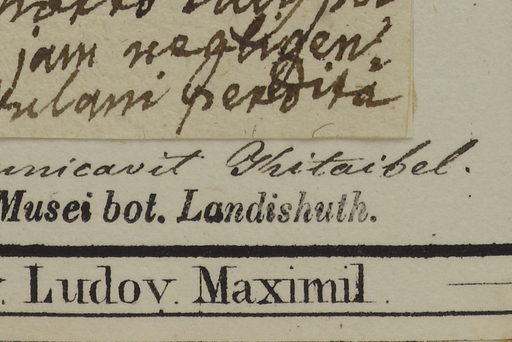 jam negligen
perdita
unicavit Khitaibel.
Musei bot. Landishuth.
. Ludov. Maximil.